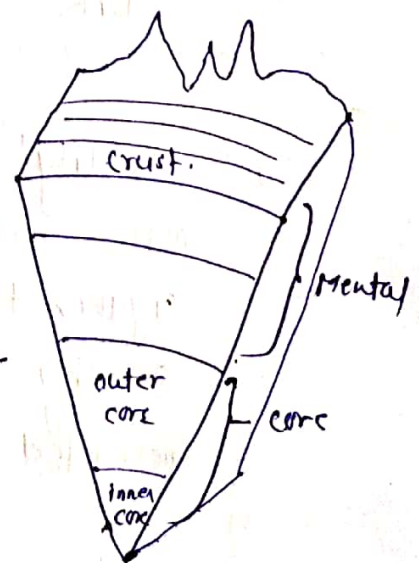 Crust.
Mental
outer
core
core
inner
core